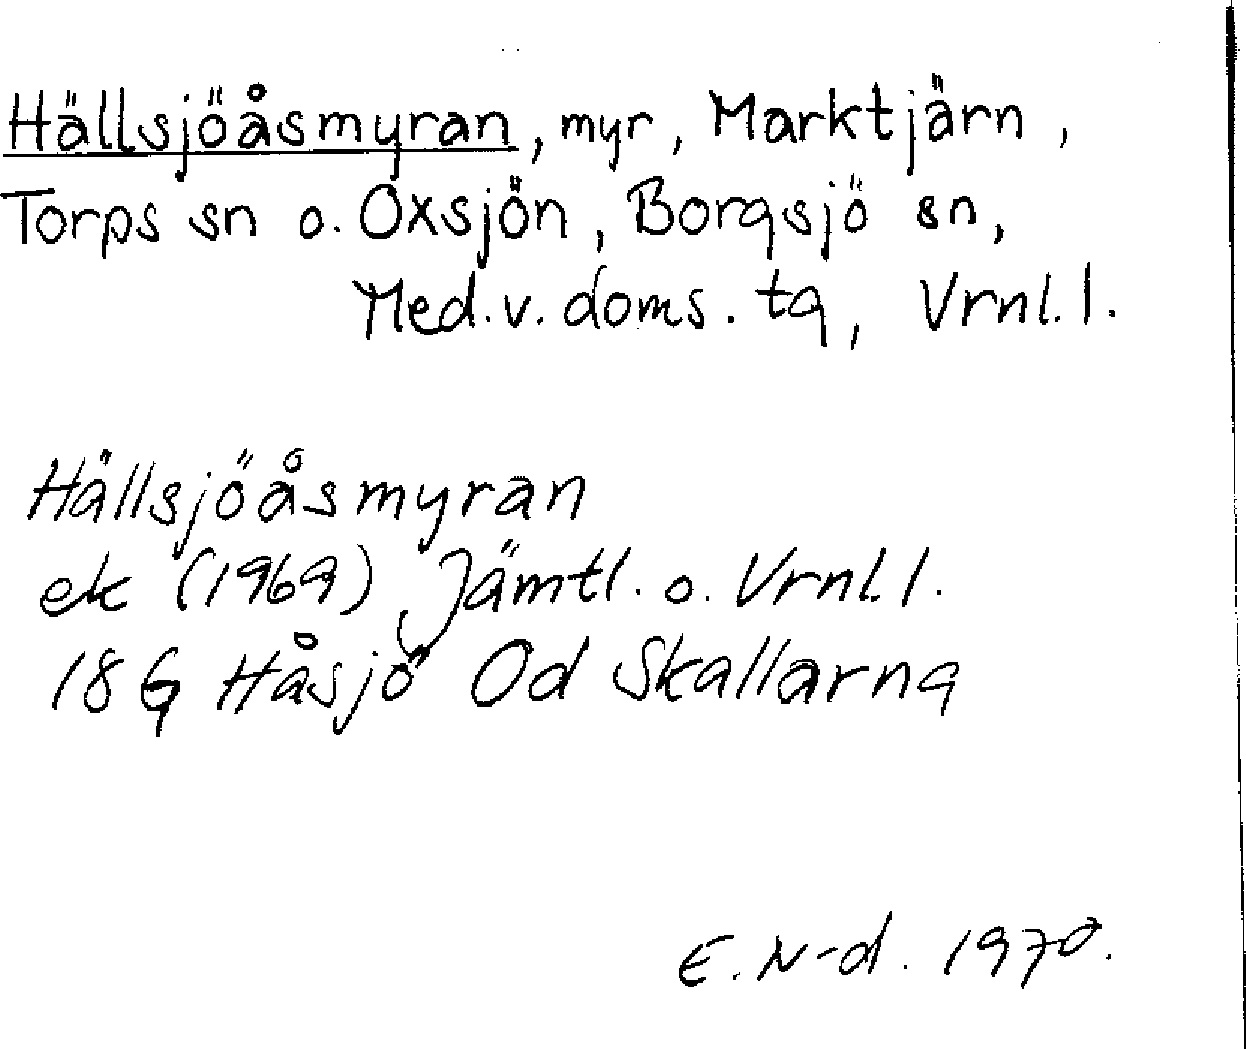 Hällsjöåsmyran, myr, Marktjärn,
Torps sn o. Oxsjön, Borgsjö sn,
Med. v. doms. tg, Vrnl. l.
Hällsjöåsmyran
ek (1969) Jämtl. o. Vrnl. l.
18 G Håsjö Od Skallarna
E. N-d. 1970.